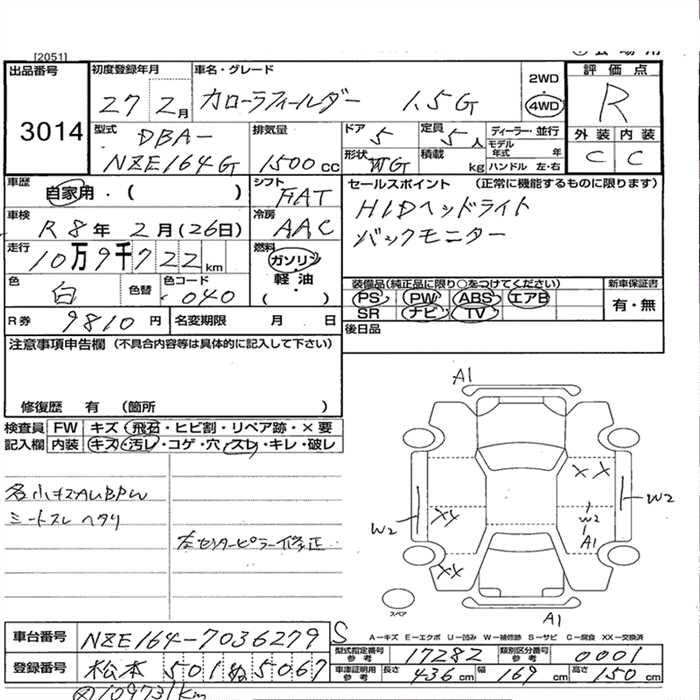 [2051]
出品番号 3014
初度登録年月 27 2月
車名・グレード カローラフィールダー 1.5G
2WD
4WD
評価点 R
外装 内装
C C
型式 DBA-
NZE164G
排気量 1500cc
ドア 5
定員 5人
形状 WG
積載 kg
ディーラー・並行
モデル年式 年
ハンドル 左・右
車歴 自家用・( )
シフト FAT
車検 R8年 2月(26日)
冷房 AAC
走行 10万9千722km
燃料 ガソリン
軽油
( )
色 白 色替 色コード 040
R券 9810円 名変期限 月 日
セールスポイント (正常に機能するものに限ります)
HIDヘッドライト
バックモニター
装備品(純正品に限り○をつけてください)
PS PW ABS エアB
SR ナビ TV
新車保証書
有・無
後日品
注意事項申告欄 (不具合内容等は具体的に記入して下さい)
修復歴 有 (箇所 )
検査員記入欄
FW キズ・飛石・ヒビ割・リペア跡・×要
内装 キズ・汚レ・コゲ・穴・スレ・キレ・破レ
各小キズAUBPW
シートスレ ヘタリ
左センターピラー修正
A1
XX
W2
W2
XX
W2
A1
XX
A1
スペア
S
A-キズ E-エクボ U-凹み W-補修跡 S-サビ C-腐食 XX-交換済
車台番号 NZE164-7036279
登録番号 松本 501 ぬ 5067
型式指定番号 参考 17282
類別区分番号 参考 0001
車庫証明用 参考 長さ 436cm 幅 169cm 高さ 150cm
109731km